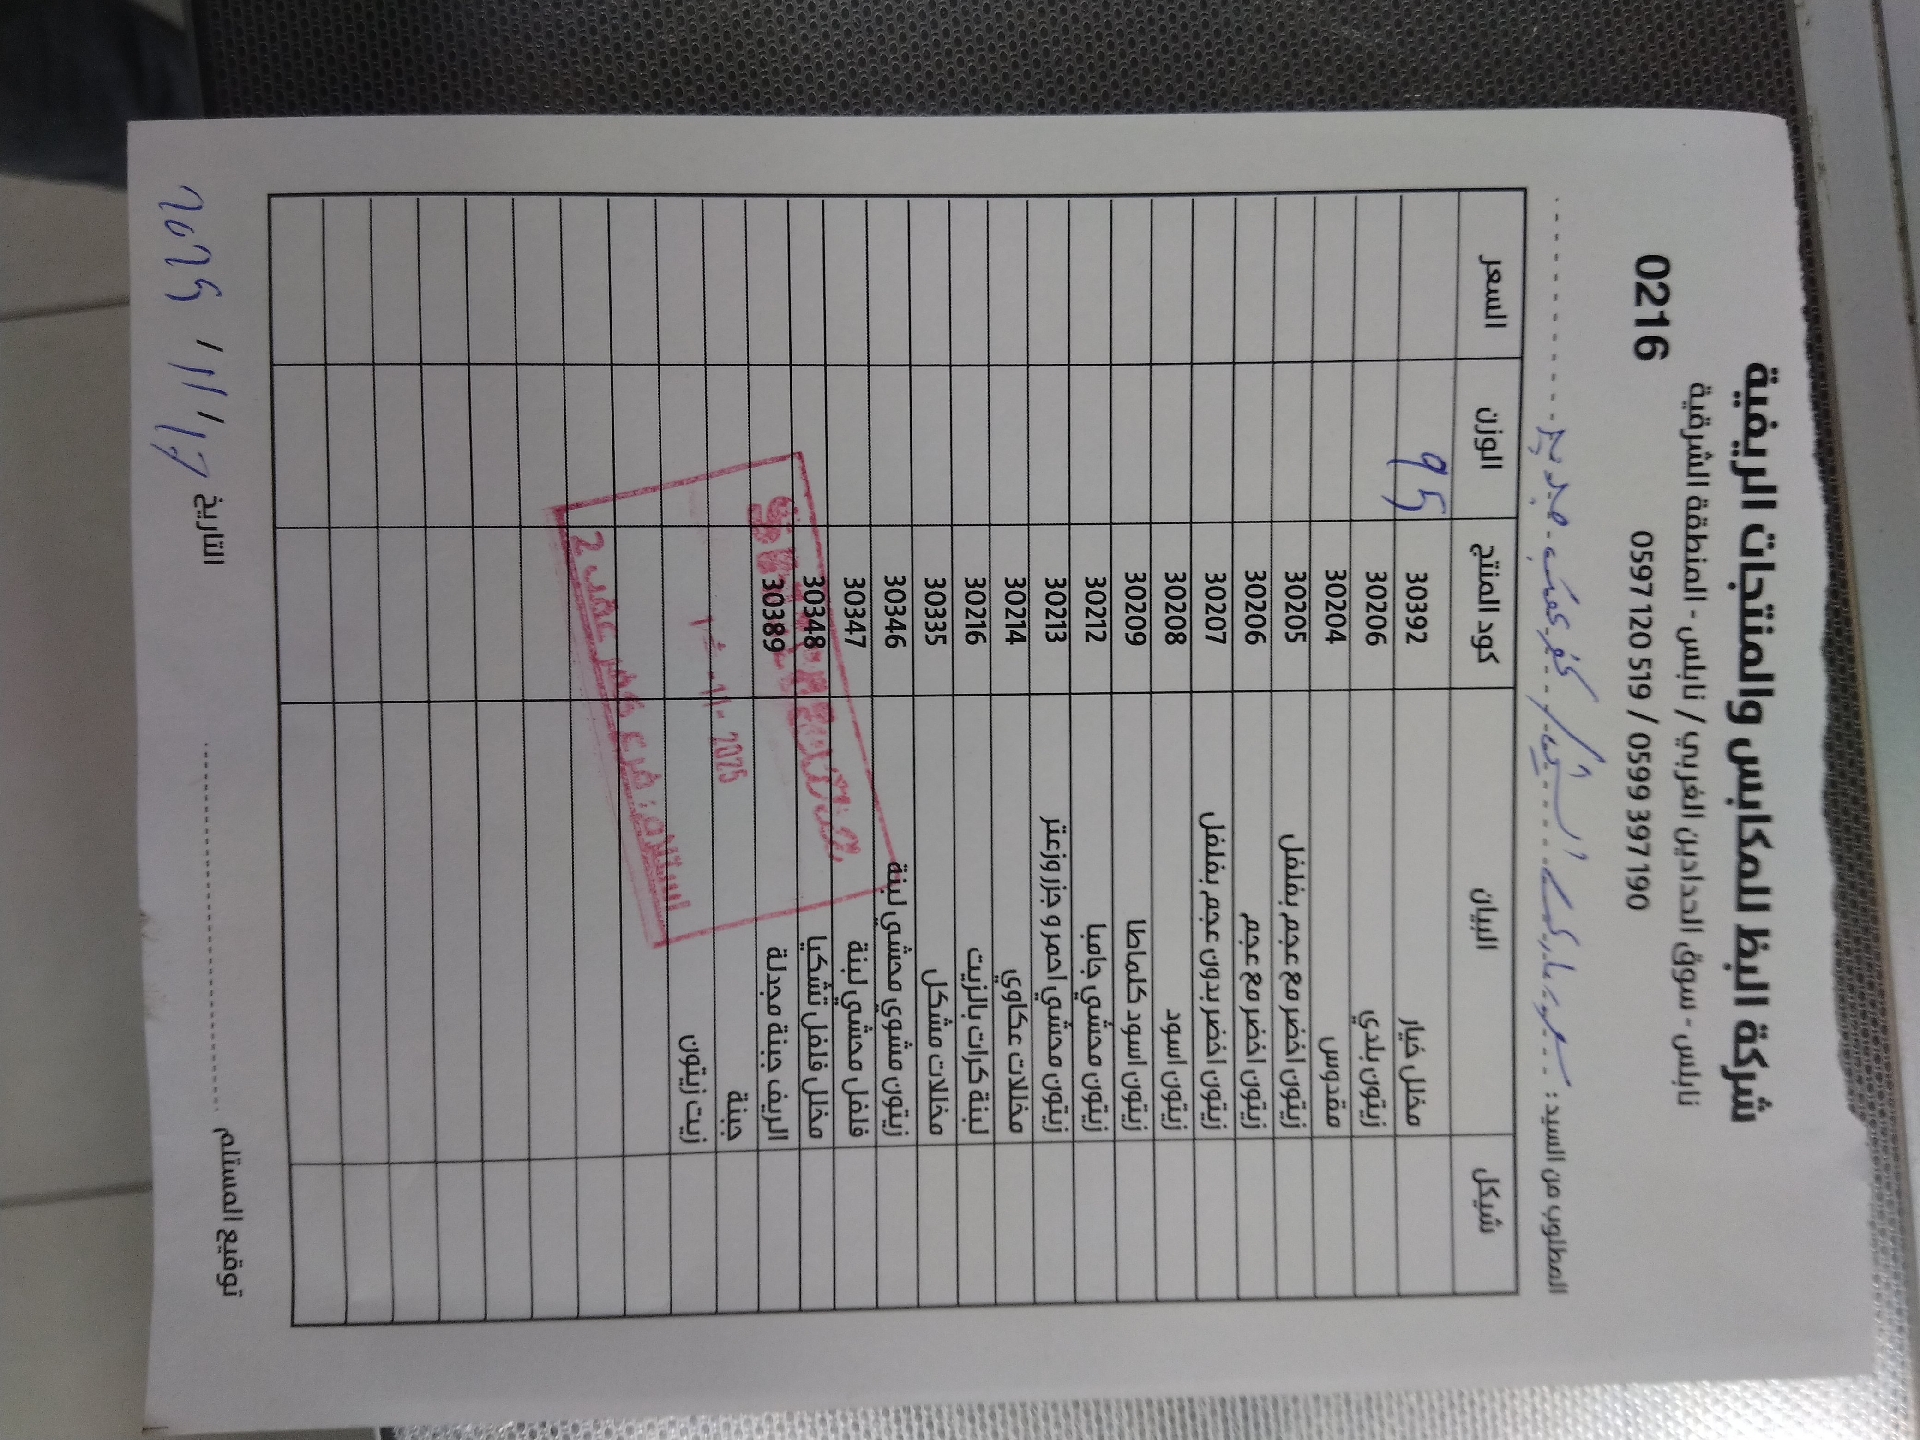 شركة البظ للمكابس والمنتجات الريفية
نابلس - سوق الحدادين الغربي / نابلس - المنطقة الشرقية
0216 0597 120 519 / 0599 397 190
المطلوب من السيد :
شيكل البيان كود المنتج الوزن السعر
مخلل خيار 30392 95
زيتون بلدي 30206
مقدوس 30204
زيتون اخضر مع عجم بفلفل 30205
زيتون اخضر مع عجم 30206
زيتون اخضر بدون عجم بفلفل 30207
زيتون اسود 30208
زيتون اسود كلماطا 30209
زيتون محشي جامبا 30212
زيتون محشي احمر و جزر وزعتر 30213
مخللات عكاوي 30214
لبنة كرات بالزيت 30216
مخللات مشكل 30335
زيتون مشوي محشي لبنة 30346
فلفل محشي لبنة 30347
مخلل فلفل تشكيا 30348
الريف جبنة مجدلة 30389
جبنة
زيت زيتون
2025
استلام : فرع كفر عقب 2
توقيع المستلم التاريخ